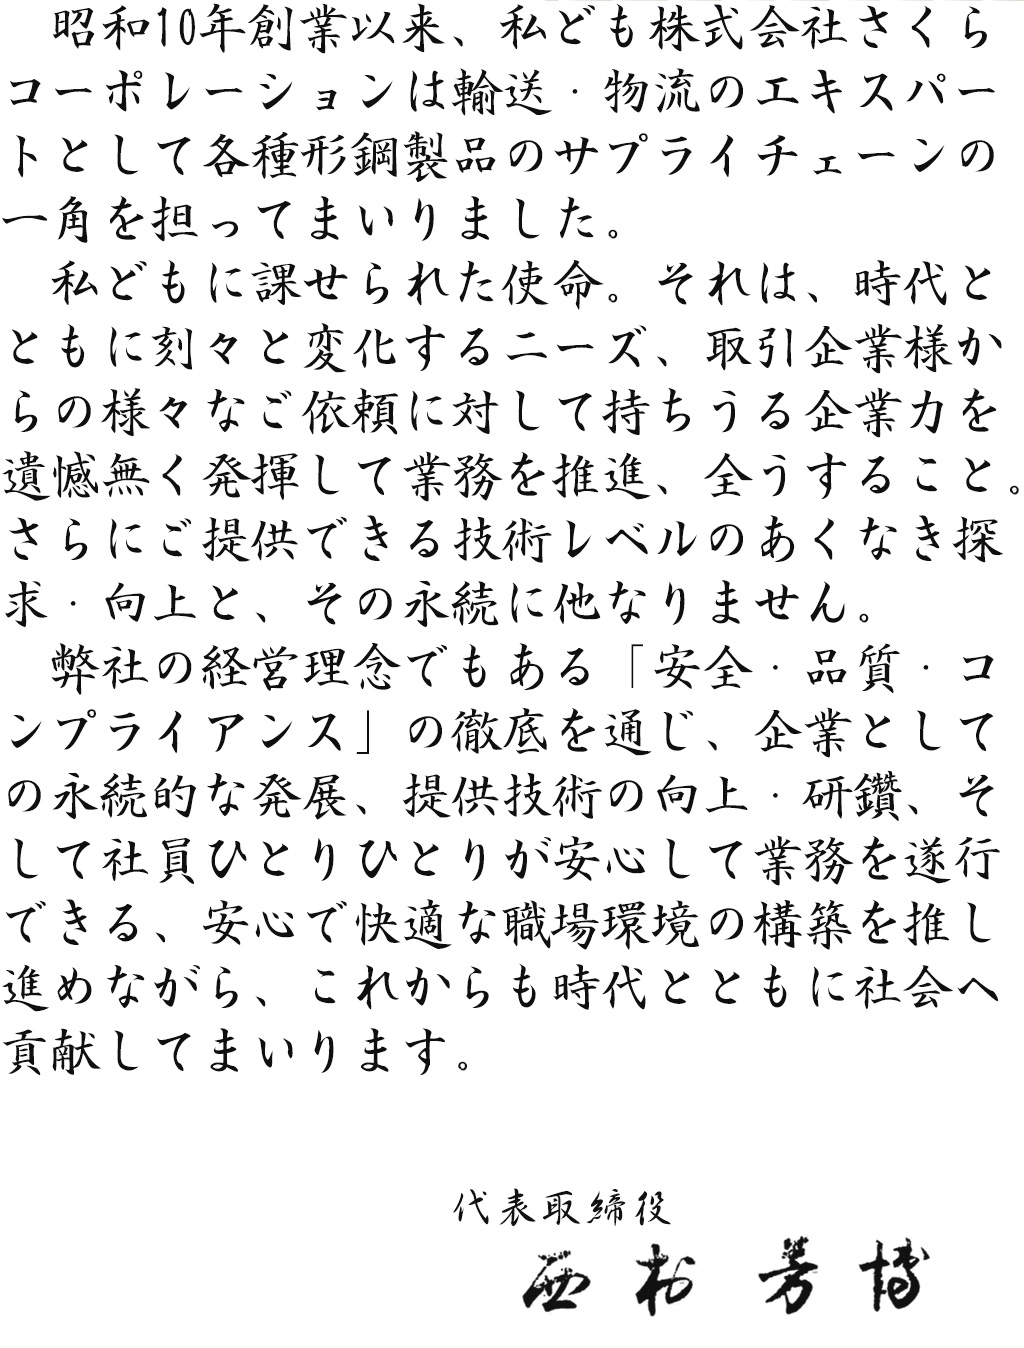 昭和10年創業以来、私ども株式会社さくら
コーポレーションは輸送・物流のエキスパー
トとして各種形鋼製品のサプライチェーンの
一角を担ってまいりました。
私どもに課せられた使命。それは、時代と
ともに刻々と変化するニーズ、取引企業様か
らの様々なご依頼に対して持ちうる企業力を
遺憾無く発揮して業務を推進、全うすること。
さらにご提供できる技術レベルのあくなき探
求・向上と、その永続に他なりません。
弊社の経営理念でもある「安全・品質・コ
ンプライアンス」の徹底を通じ、企業として
の永続的な発展、提供技術の向上・研鑽、そ
して社員ひとりひとりが安心して業務を遂行
できる、安心で快適な職場環境の構築を推し
進めながら、これからも時代とともに社会へ
貢献してまいります。
代表取締役
西村 芳博